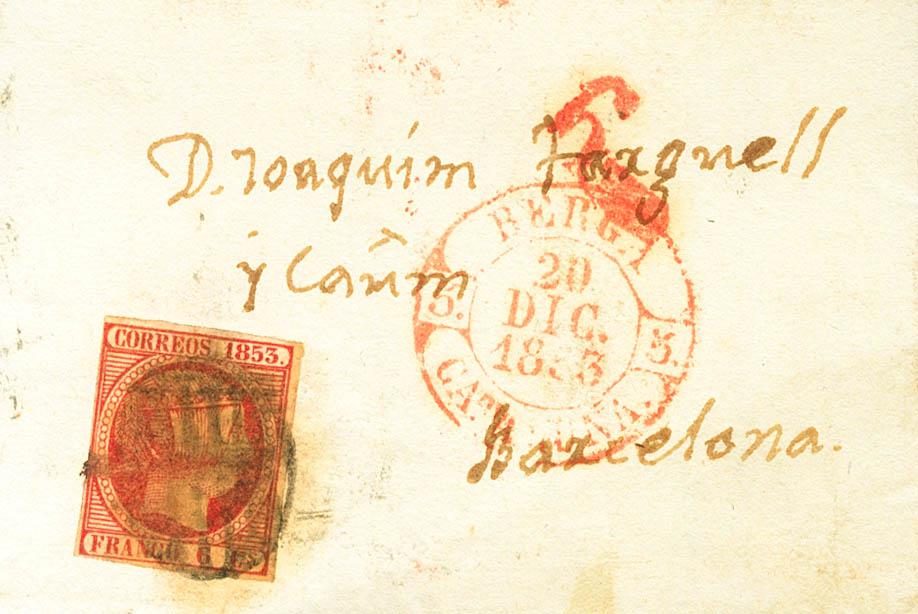 D. Joaquim Fargnell
y
Barcelona.
BERGA
20
DIC.
1853
3. 3.
CATALUÑA.
CORREOS 1853.
FRANCO 6 CS